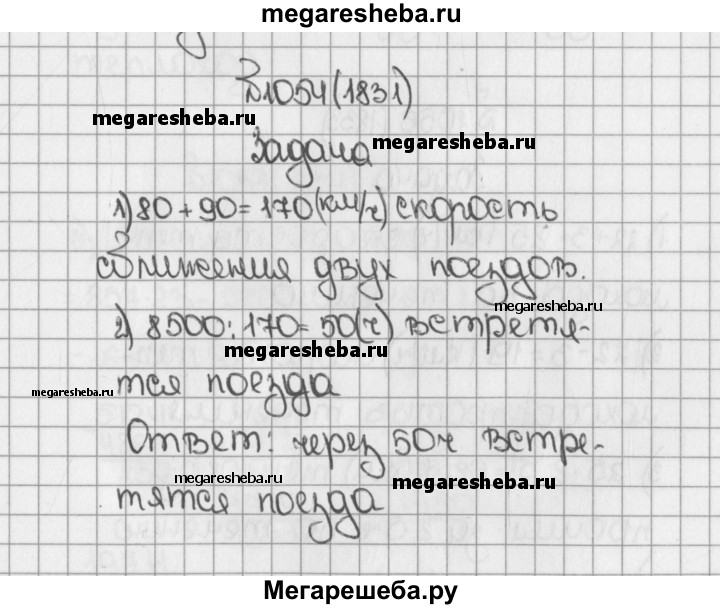 megaresheba.ru
№1054(1831)
megaresheba.ru
Задача megaresheba.ru
1) 80 + 90 = 170 (км/ч) скорость
сближения двух поездов.
megaresheba.ru
2) 8500 : 170 = 50(ч) встретя-
megaresheba.ru
megaresheba.ru тся поезда
Ответ: через 50ч встре-
megaresheba.ru megaresheba.ru
тятся поезда
Мегарешеба.ру